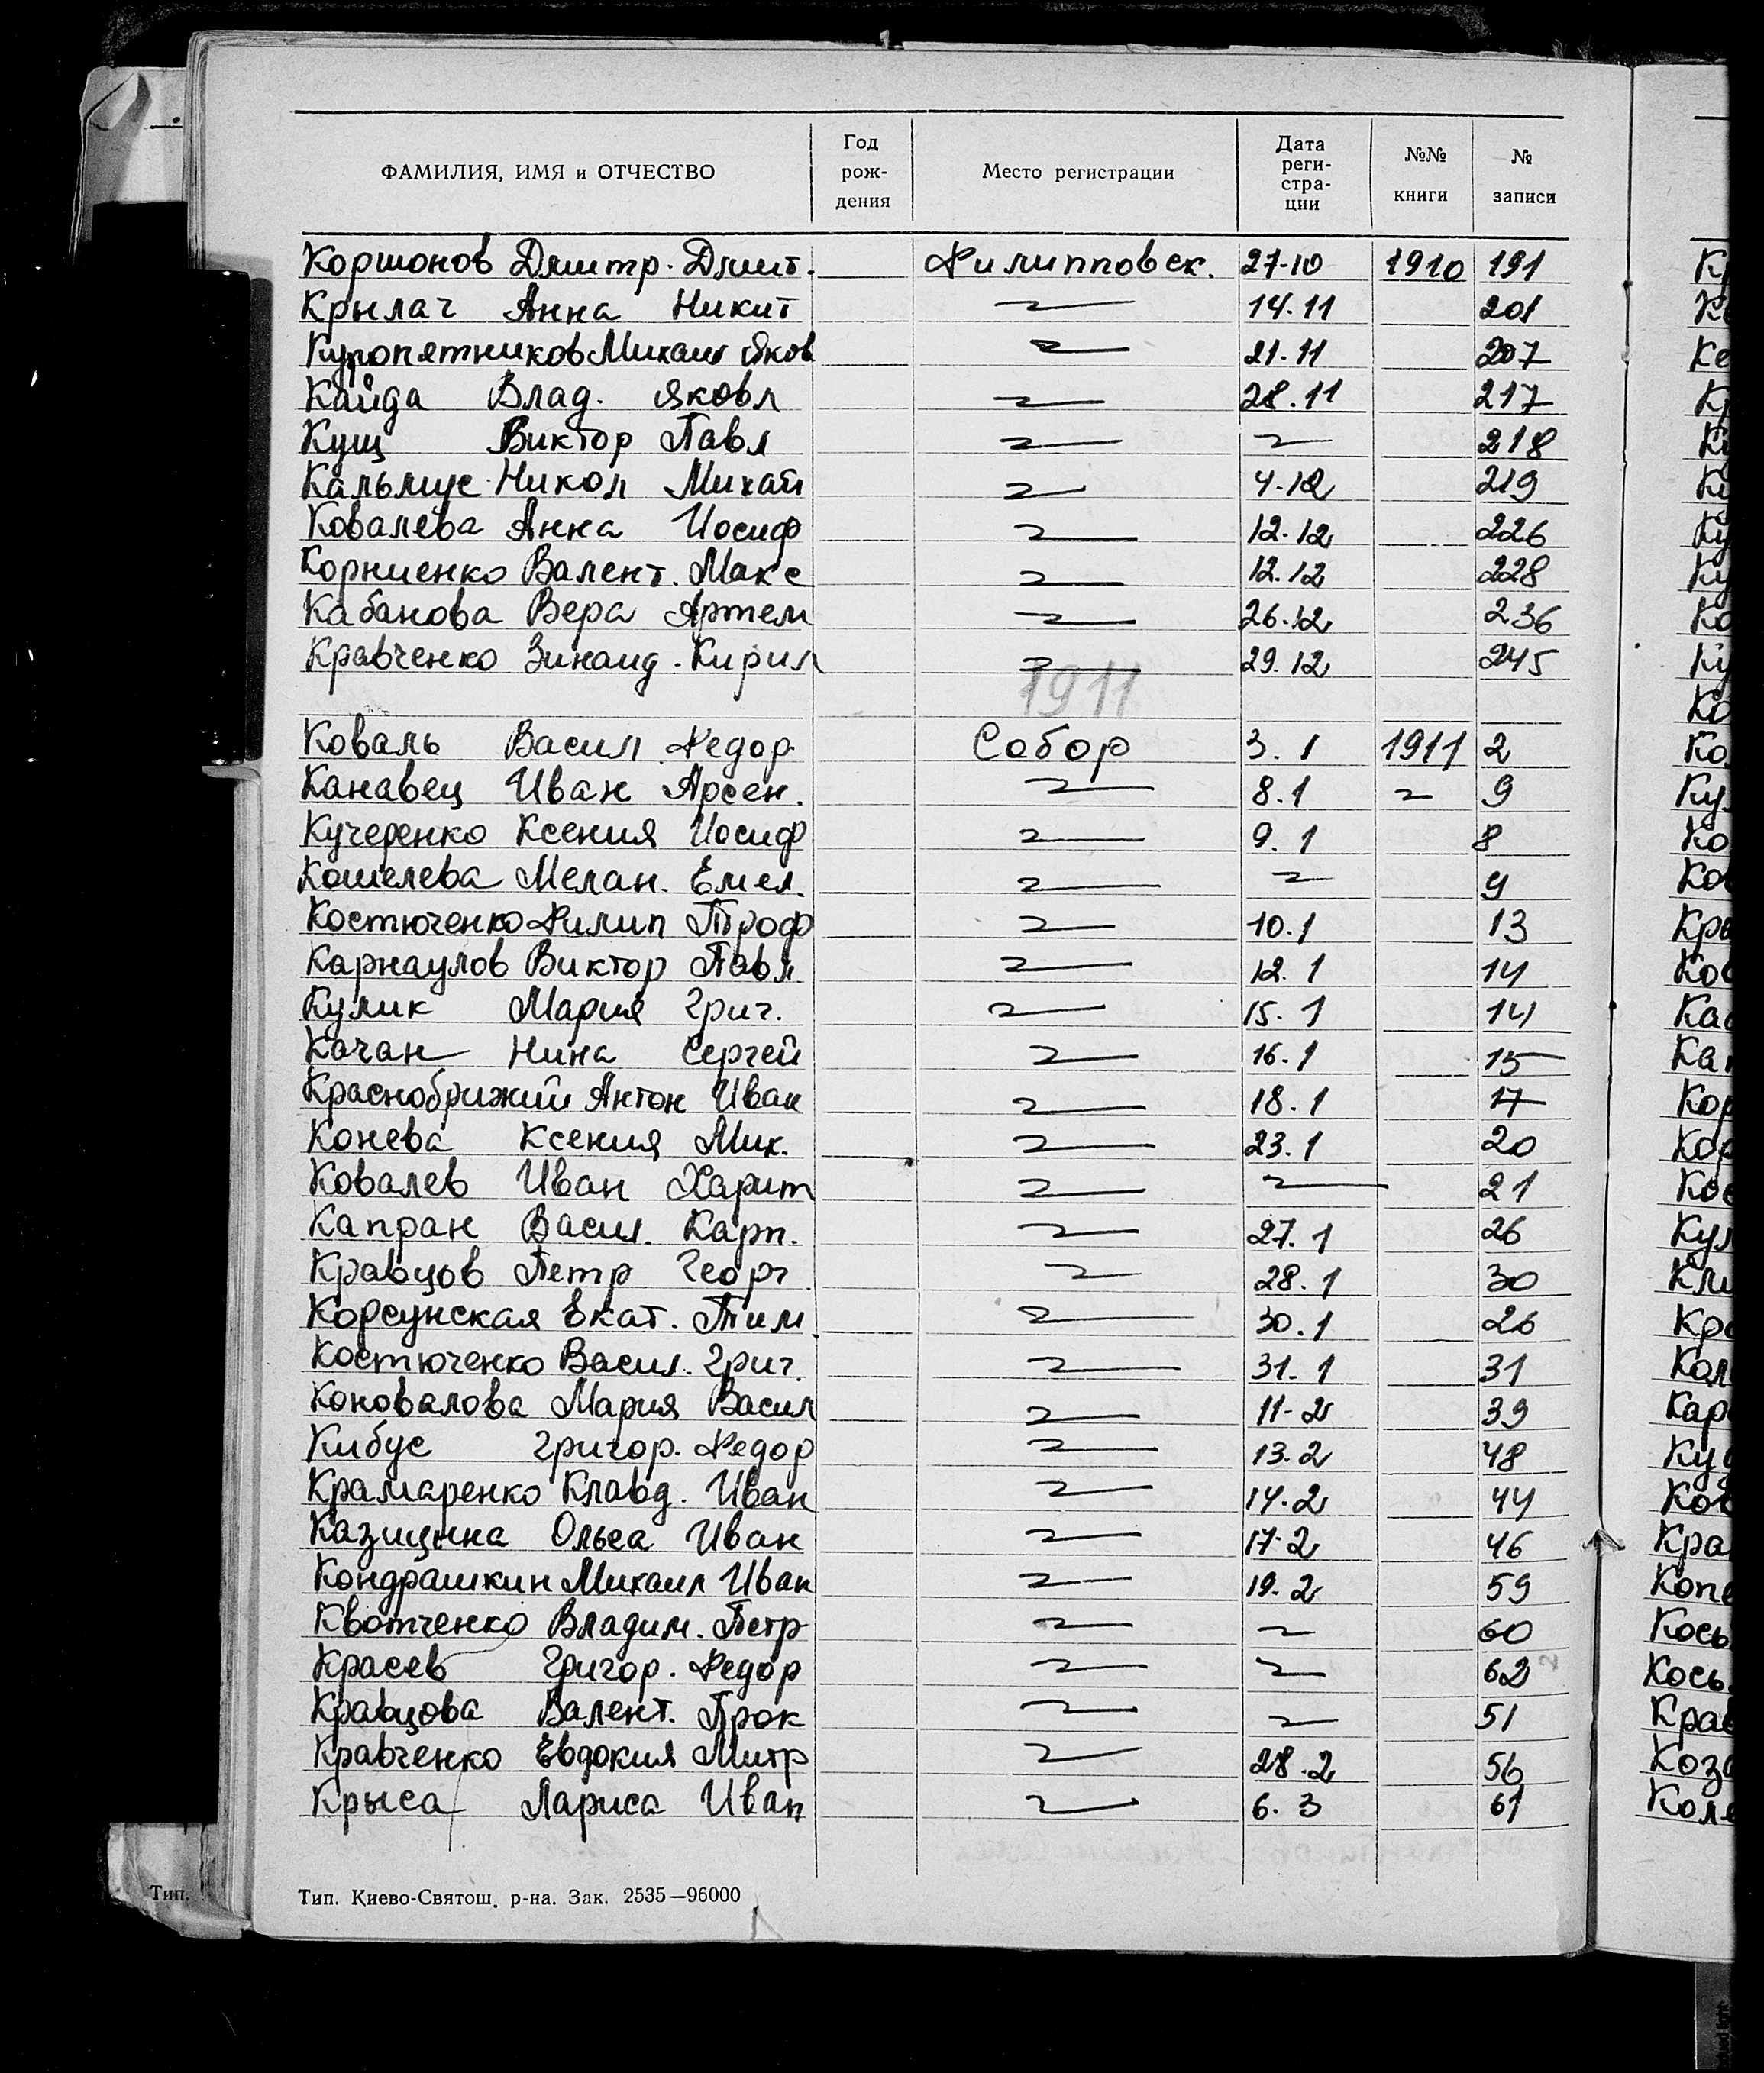 ФАМИЛИЯ, ИМЯ и ОТЧЕСТВО Год рождения Место регистрации Дата регистрации №№ книги № записи
Коршонов Дмитр. Дмит. Филипповск. 27-10 1910 191
Крылач Анна Никит 14.11 201
Куропятников Михаил Яков 21.11 207
Кайда Влад. Яковл 28.11 217
Кущ Виктор Павл 218
Кальмус Никол Михайл 4.12 219
Ковалева Анна Иосиф 12.12 226
Корниенко Валент. Макс 12.12 228
Кабанова Вера Артем 26.12 236
Кравченко Зинаид. Кирил 29.12 245
1911
Коваль Васил Федор Собор 3.1 1911 2
Канавец Иван Арсен. 8.1 9
Кучеренко Ксения Иосиф 9.1 8
Кошелева Мелан. Емел. 9
Костюченко Филип Троф 10.1 13
Карнаулов Виктор Павл. 12.1 14
Кулик Мария Григ. 15.1 14
Качан Нина Сергей 16.1 15
Краснобрижий Антон Иван 18.1 17
Конева Ксения Мих. 23.1 20
Ковалев Иван Харит 21
Капран Васил. Карп. 27.1 26
Кравцов Петр Георг 28.1 30
Корсунская Екат. Тим. 30.1 26
Костюченко Васил. Григ. 31.1 31
Коновалова Мария Васил 11-2 39
Кибус Григор. Федор 13.2 48
Крамаренко Клавд. Иван 14.2 44
Казицина Ольга Иван 17.2 46
Кондрашкин Михаил Иван 19.2 59
Квотченко Владим. Петр 60
Красев Григор. Федор 62
Кравцова Валент. Прок 51
Кравченко Евдокия Митр 28.2 56
Крыса Лариса Иван 6.3 61
Тип. Киево-Святош. р-на. Зак. 2535—96000
Тип.